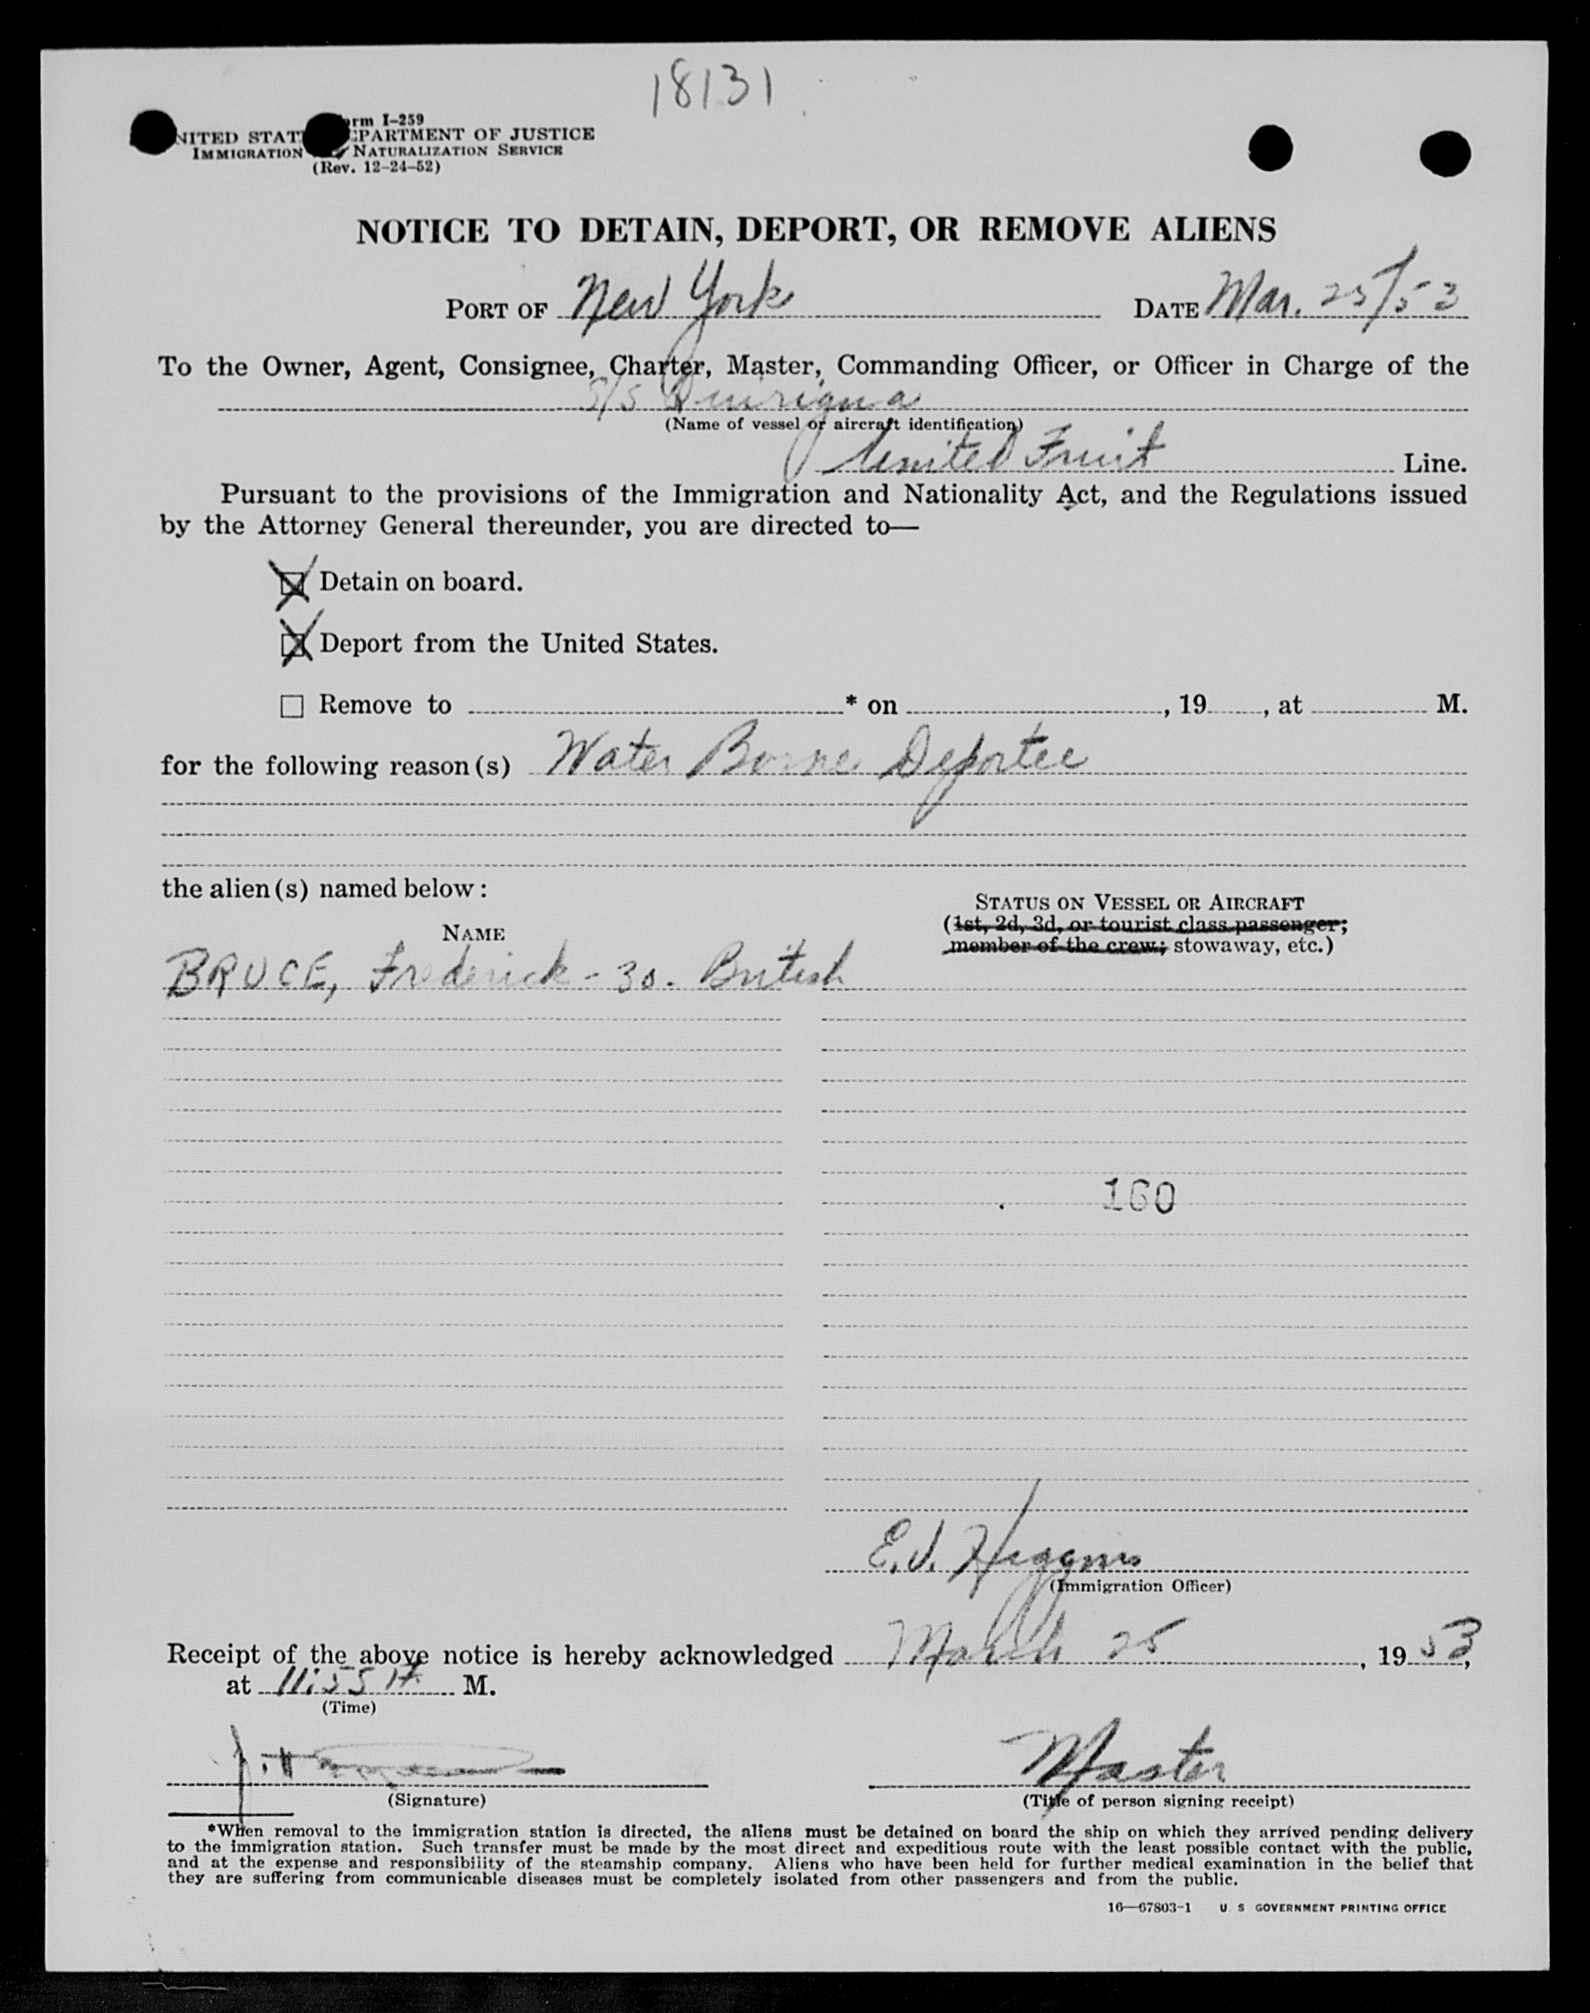 18131
Form I-259
UNITED STATES DEPARTMENT OF JUSTICE
IMMIGRATION NATURALIZATION SERVICE
(Rev. 12-24-52)
NOTICE TO DETAIN, DEPORT, OR REMOVE ALIENS
PORT OF New York DATE Mar. 25/53
To the Owner, Agent, Consignee, Charter, Master, Commanding Officer, or Officer in Charge of the
S/S Quirigua
(Name of vessel or aircraft identification)
United Fruit Line.
Pursuant to the provisions of the Immigration and Nationality Act, and the Regulations issued
by the Attorney General thereunder, you are directed to—
☒ Detain on board.
☒ Deport from the United States.
☐ Remove to * on , 19 , at M.
for the following reason(s) Water Borne Deportee
the alien(s) named below:
STATUS ON VESSEL OR AIRCRAFT
(1st, 2d, 3d, or tourist class passenger;
member of the crew; stowaway, etc.)
NAME
BRUCE, Frederick - 30. British
160
E.J. Higgins
(Immigration Officer)
Receipt of the above notice is hereby acknowledged March 25, 1953,
at 11:55 A. M.
(Time)
Master
(Signature) (Title of person signing receipt)
*When removal to the immigration station is directed, the aliens must be detained on board the ship on which they arrived pending delivery
to the immigration station. Such transfer must be made by the most direct and expeditious route with the least possible contact with the public,
and at the expense and responsibility of the steamship company. Aliens who have been held for further medical examination in the belief that
they are suffering from communicable diseases must be completely isolated from other passengers and from the public.
16—67803-1 U. S GOVERNMENT PRINTING OFFICE